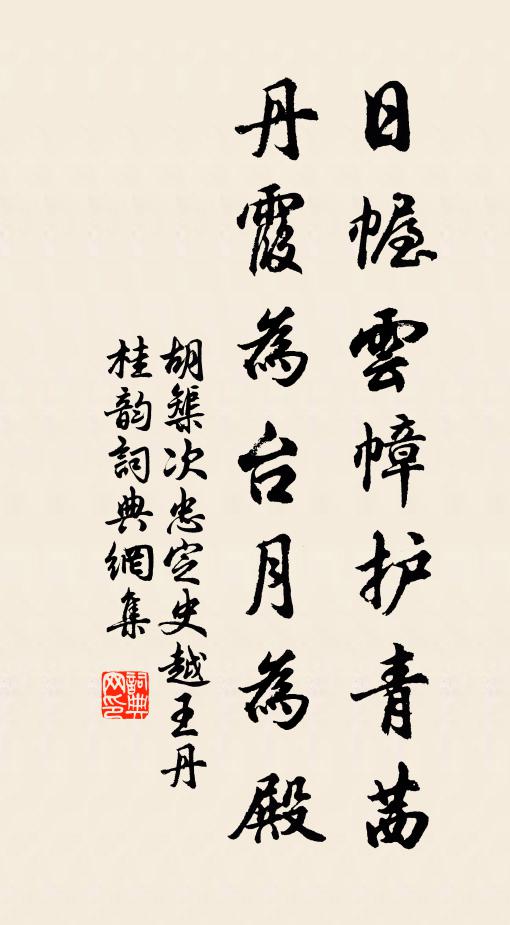 日幄雲幛护青茜
丹霞為台月為殿
胡榘次忠定史越王丹
桂韵詞典網集
詞典网印